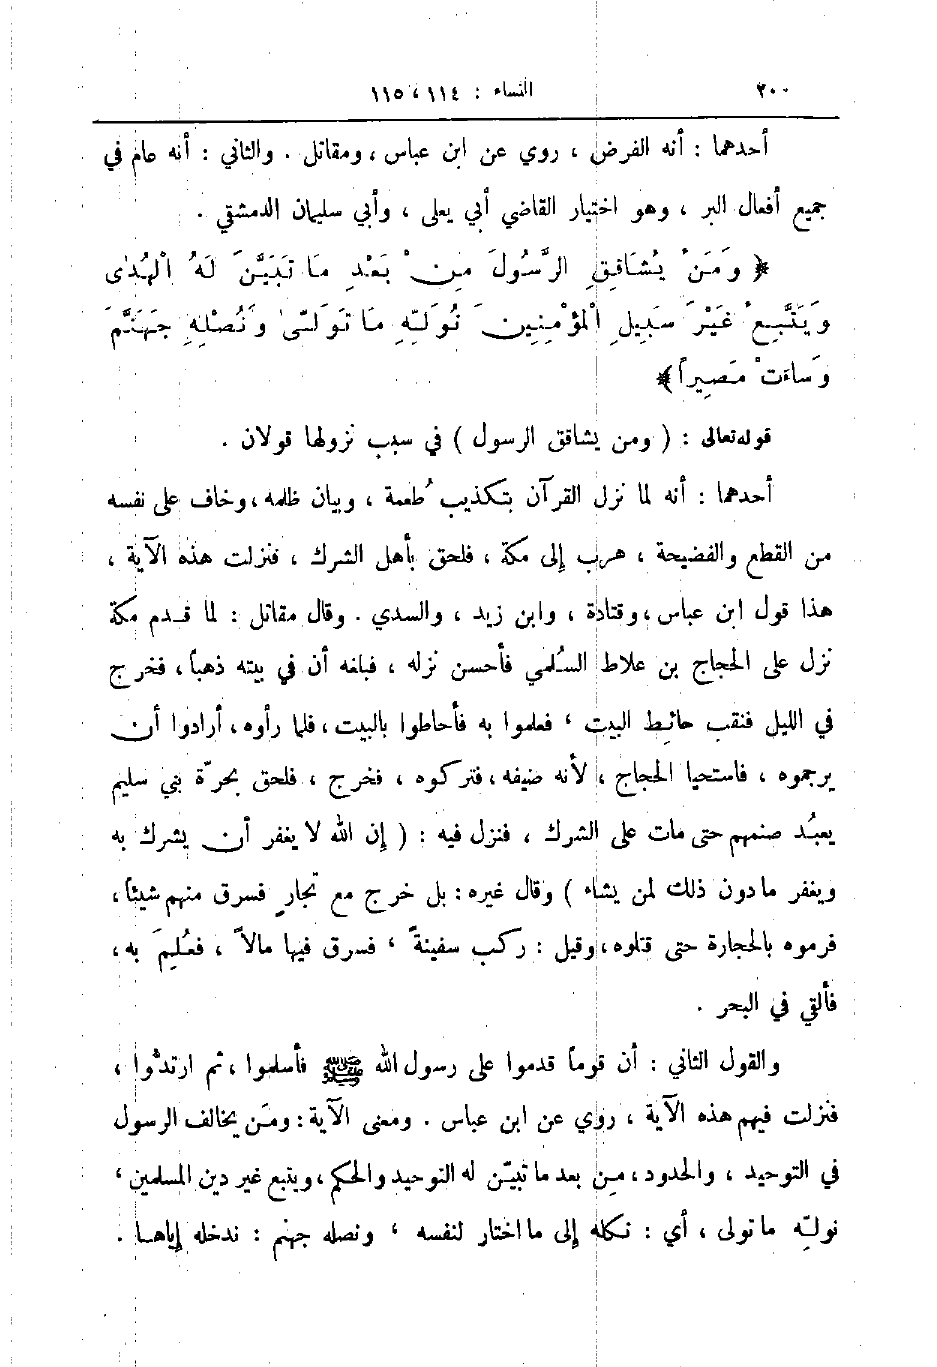 ٢٠٠ النساء : ١١٤ ، ١١٥
أحدهما : أنه الفرض ، روي عن ابن عباس ، ومقاتل . والثاني : أنه عام في
جميع أفعال البر ، وهو اختيار القاضي أبي يعلى ، وأبي سليمان الدمشقي .
﴿ وَمَنْ يُشَاقِقِ الرَّسُولَ مِنْ بَعْدِ مَا تَبَيَّنَ لَهُ الْهُدَىٰ
وَيَتَّبِعْ غَيْرَ سَبِيلِ الْمُؤْمِنِينَ نُوَلِّهِ مَا تَوَلَّىٰ وَنُصْلِهِ جَهَنَّمَ
وَسَاءَتْ مَصِيراً ﴾
قوله تعالى : ( ومن يشاقق الرسول ) في سبب نزولها قولان .
أحدهما : أنه لما نزل القرآن بتكذيب طُعمة ، وبيان ظلمه ، وخاف على نفسه
من القطع والفضيحة ، هرب إلى مكة ، فلحق بأهل الشرك ، فنزلت هذه الآية ،
هذا قول ابن عباس ، وقتادة ، وابن زيد ، والسدي . وقال مقاتل : لما قدم مكة
نزل على الحجاج بن علاط السُلمي فأحسن نزله ، فبلغه أن في بيته ذهباً ، فخرج
في الليل فنقب حائط البيت ، فعلموا به فأحاطوا بالبيت ، فلما رأوه ، أرادوا أن
يرجموه ، فاستحيا الحجاج ، لأنه ضيفه ، فتركوه ، فخرج ، فلحق بحرّة بني سليم
يعبُد صنمهم حتى مات على الشرك ، فنزل فيه : ( إن الله لا يغفر أن يشرك به
ويغفر ما دون ذلك لمن يشاء ) وقال غيره : بل خرج مع تجارٍ فسرق منهم شيئاً ،
فرموه بالحجارة حتى قتلوه ، وقيل : ركب سفينةً ، فسرق فيها مالاً ، فعُلِمَ به ،
فألقي في البحر .
والقول الثاني : أن قوماً قدموا على رسول الله ﷺ فأسلموا ، ثم ارتدُّوا ،
فنزلت فيهم هذه الآية ، روي عن ابن عباس . ومعنى الآية : ومَن يخالف الرسول
في التوحيد ، والحدود ، مِن بعد ما تبيّن له التوحيد والحكم ، ويتبع غير دين المسلمين ،
نولِّه ما تولى ، أي : نكله إلى ما اختار لنفسه ، ونصله جهنم : ندخله إياها .